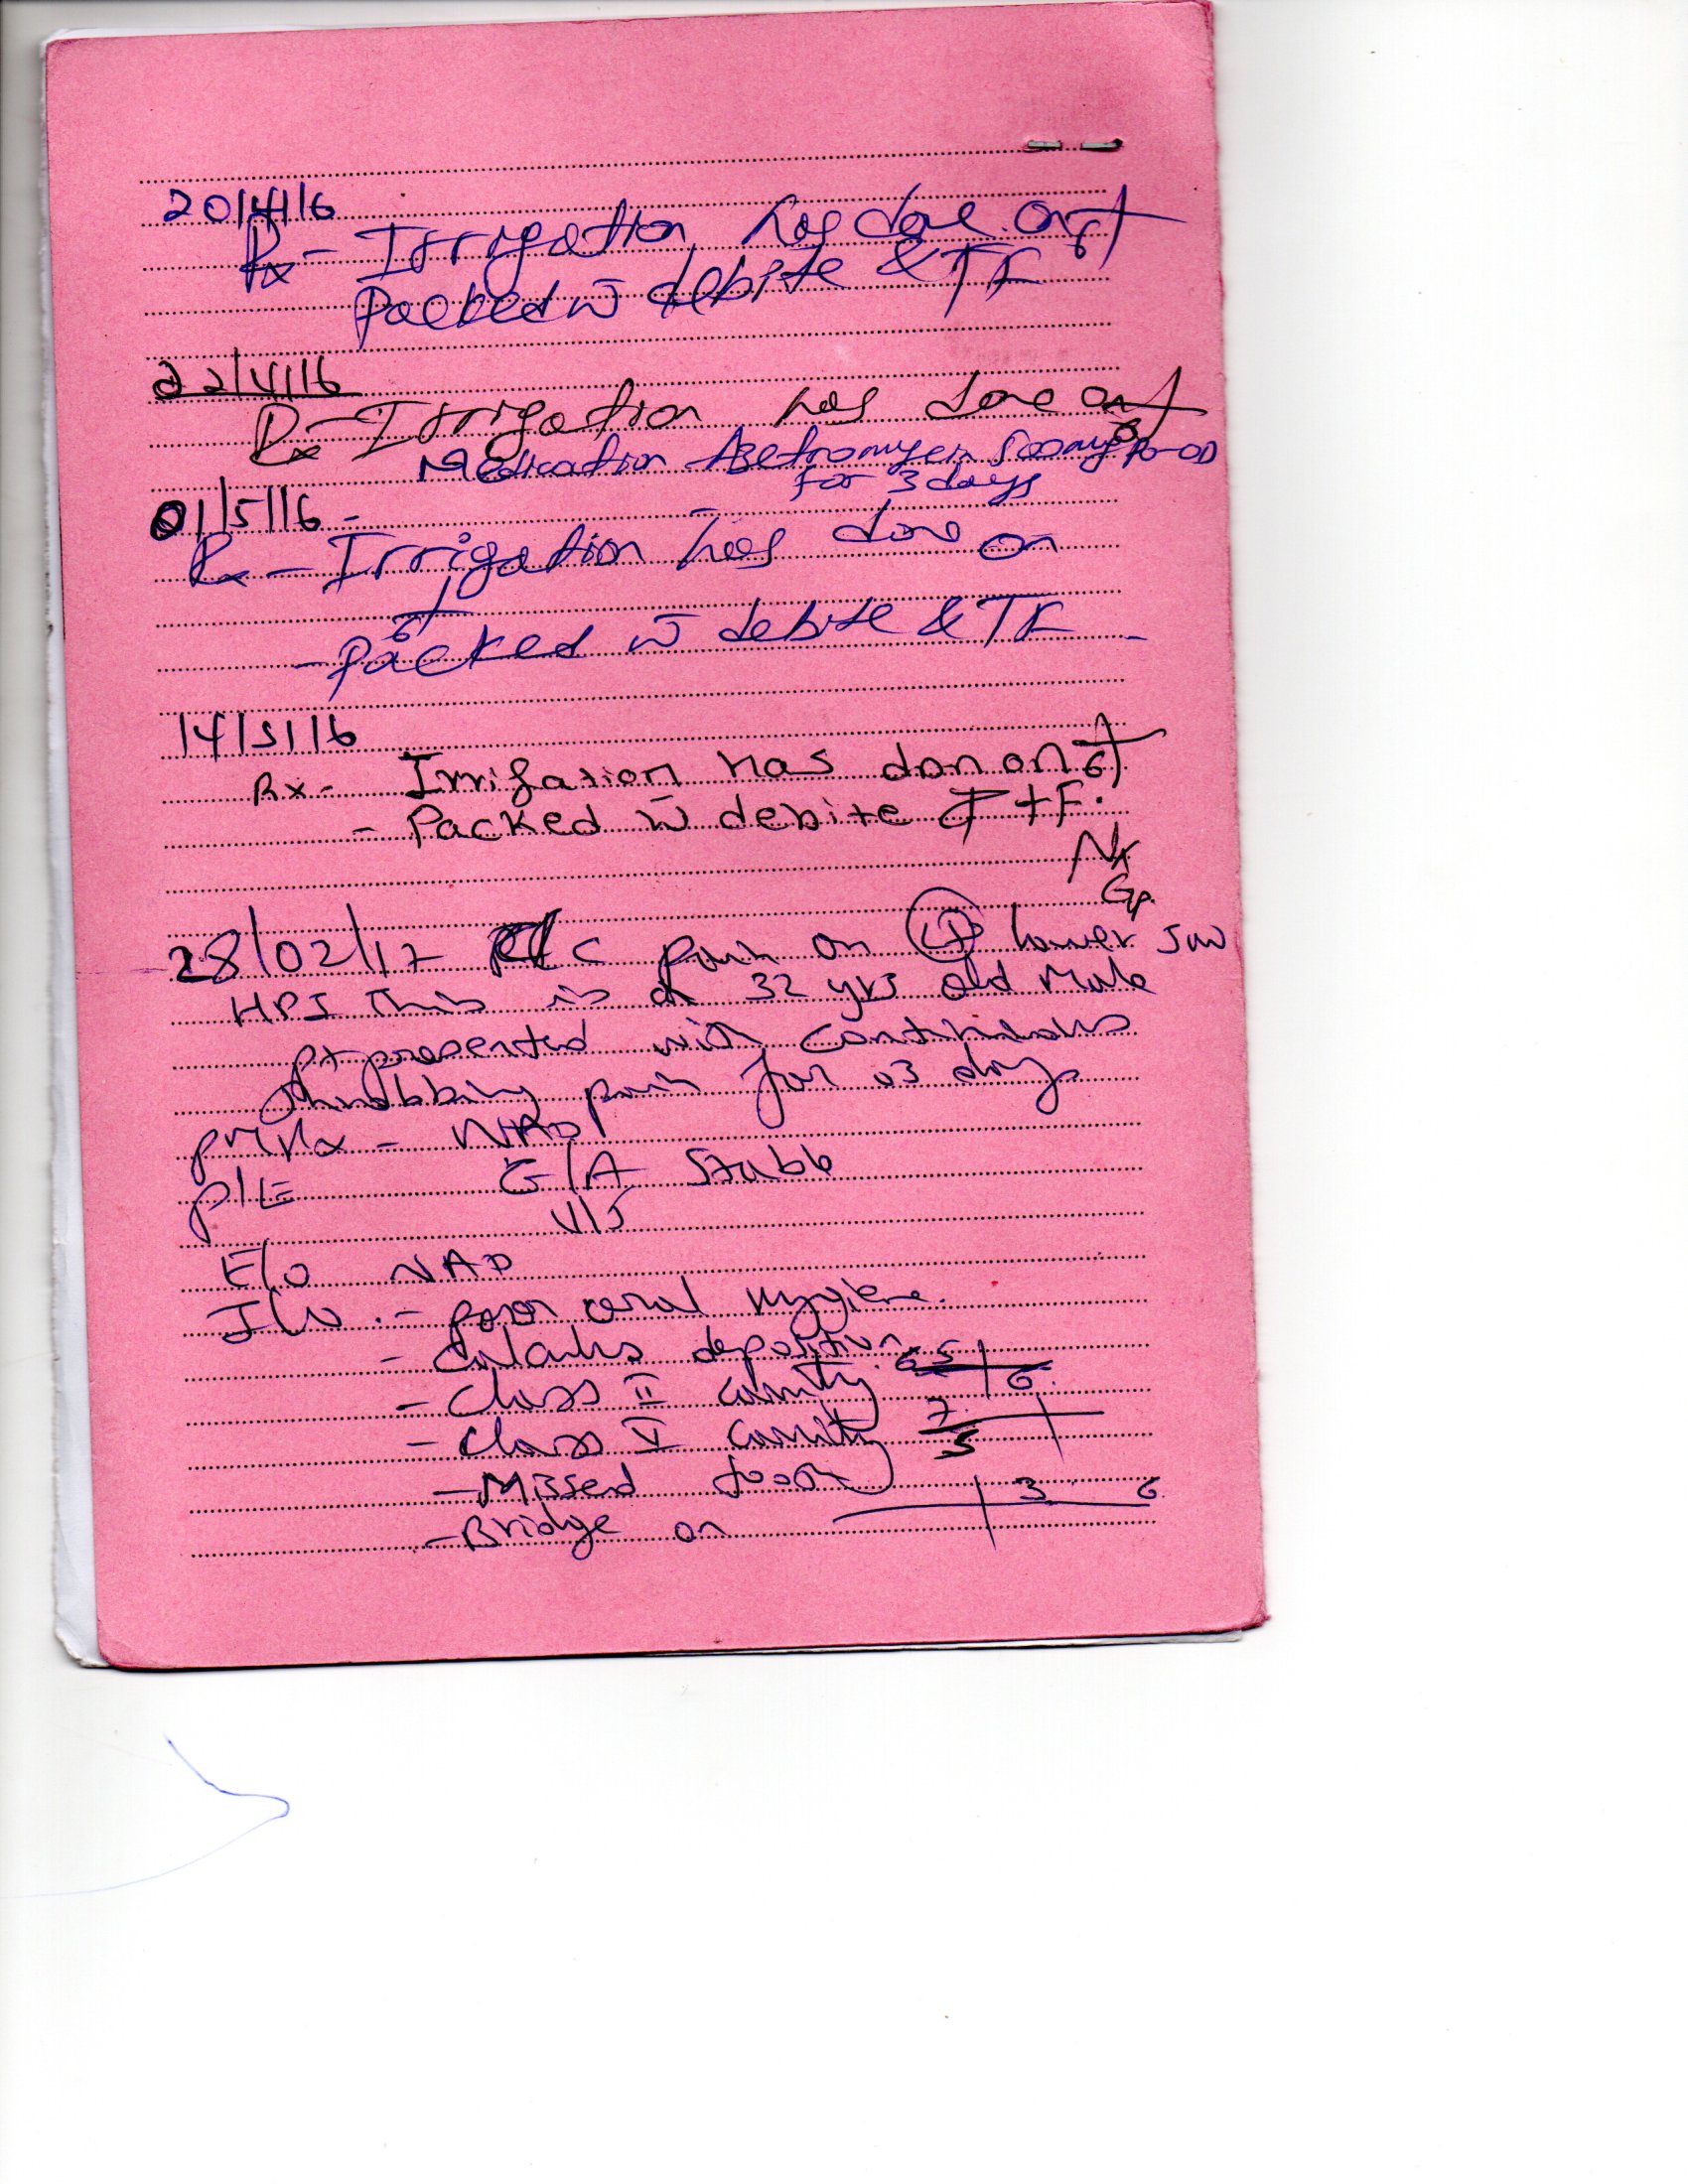 20/4/16
Rx - Irrigation has done on 6
Packed w̄ debite & TF
22/4/16
Rx - Irrigation has done on 6
Medication Azetromycin 500mg Po-OD
for 3 days
01/5/16 -
Rx - Irrigation has done on
6
- Packed w̄ debite & TF
14/5/16
Rx - Irrigasion has don on 6
- Packed w̄ debite & TF.
28/02/17 C/C pain on lower Jaw
HPI This is a 32 yrs old Male
pt presented with continuous
throbbing pain for 03 days
PMHx - NAD
P/E G/A Stable
V/S
E/O NAD
I/O - poor oral hygiene.
- Calculus deposition
- Class II cavity 65 6
- Class V cavity 7 5
- Missed tooth
- Bridge on 3 6